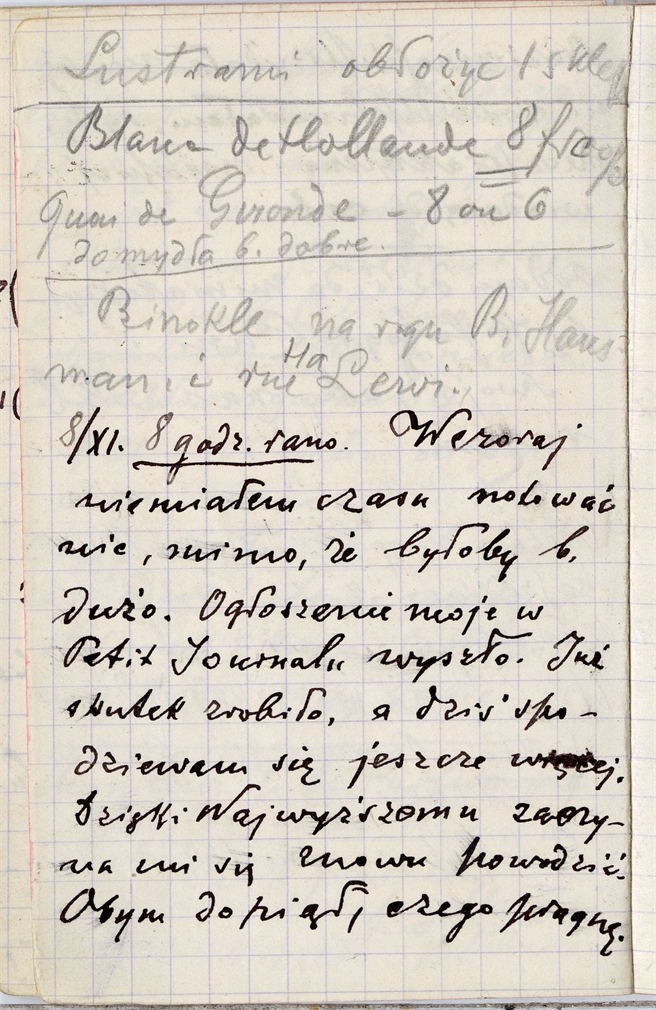 Lustrami obłożyć 1 sklep
Blanc de Hollande 8 frc
Quai de Gironde - 8 ou 6
do mydła b. dobre.
Binokle na rogu B. Haus-
man, i rue Ha Lewi.,
8/XI. 8 godz. rano. Wczoraj
niemiałem czasu notować
nic, mimo, że byłoby b.
dużo. Ogłoszenie moje w
Petit Journalu wyszło. Już
skutek zrobiło, a dziś spo-
dziewam się jeszcze więcej.
Dzięki Najwyższemu zaczy-
na mi się znowu powodzić.
Obym dopiął, czego pragnę.